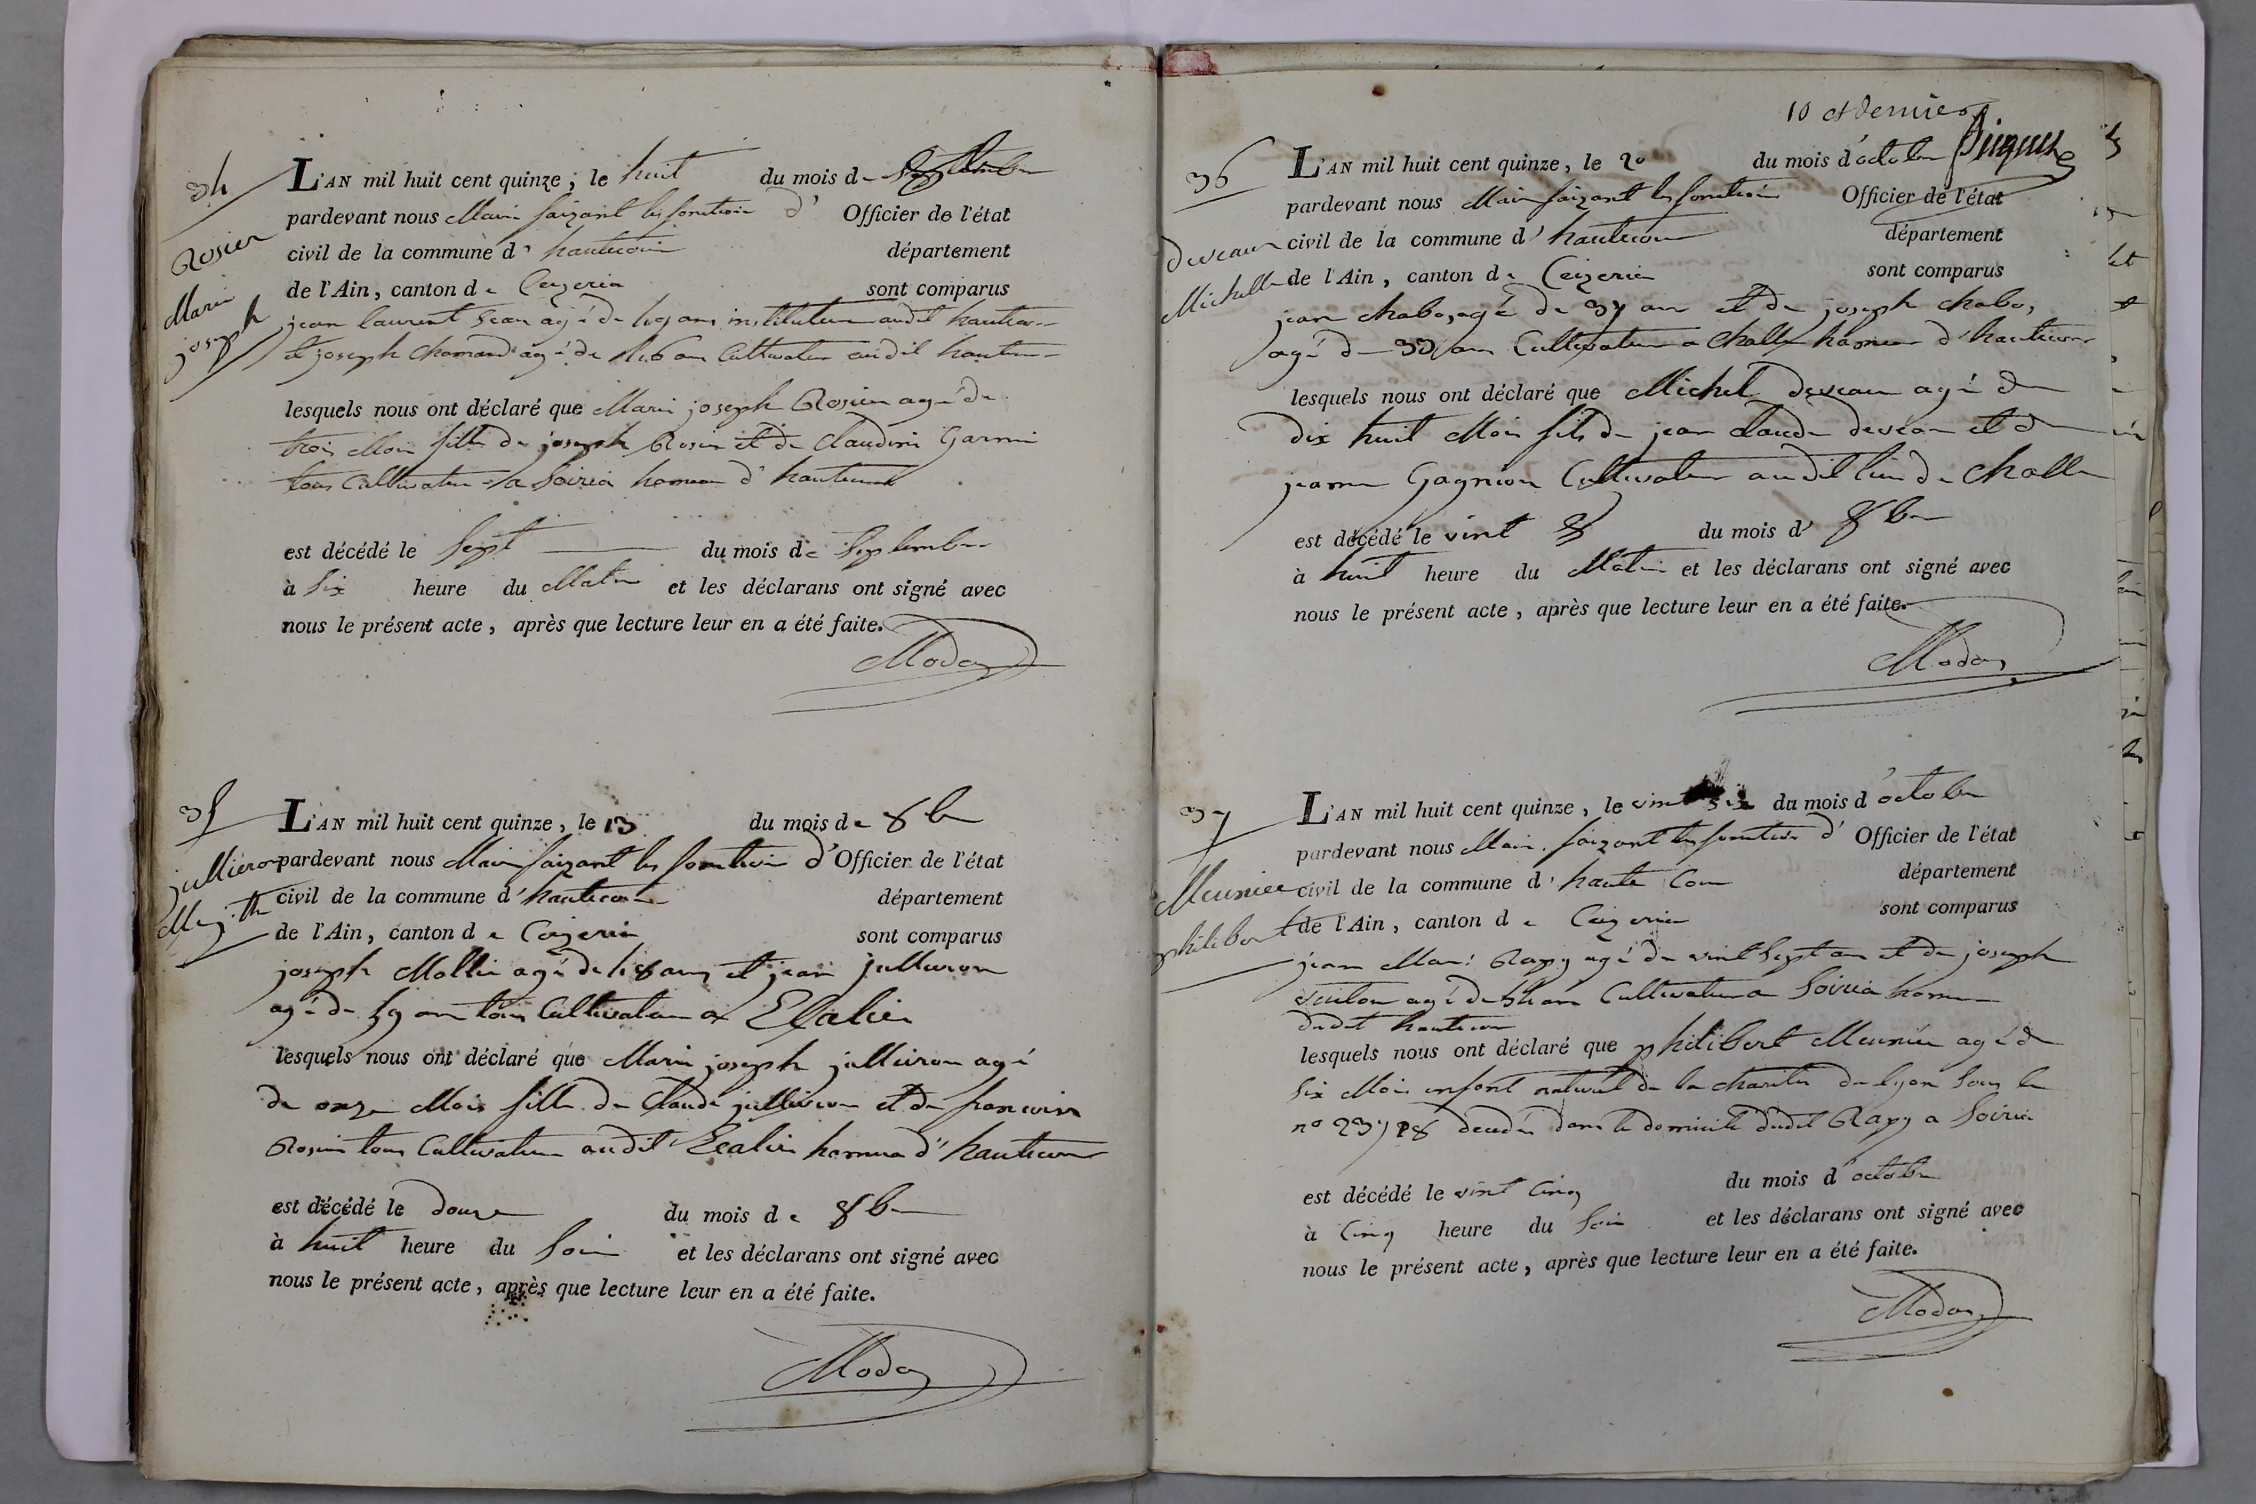 34
Rosier
Marie
joseph
L'AN mil huit cent quinze, le huit du mois de Septembre
pardevant nous Maire faizant les fonction d' Officier de l'état
civil de la commune d' hautecour département
de l'Ain, canton de Ceyzeria sont comparus
jean laurent agé de ans instituteur audit hautecour
et joseph Chanard agé de ans Cultivateur audit hautecour
lesquels nous ont déclaré que Marie joseph Rosier agé de
trois Mois fille de joseph Rosier et de Claudine Garnie
tous Cultivateur a Soiria hameau d' hautecour
est décédé le Sept du mois de Septembre
à Six heure du Matin et les déclarans ont signé avec
nous le présent acte, après que lecture leur en a été faite.
Modas
35
jullieron
M jth
L'AN mil huit cent quinze, le 13 du mois de 8bre
pardevant nous Maire faizant les fonction d' Officier de l'état
civil de la commune d' hautecour département
de l'Ain, canton de Ceyzeria sont comparus
joseph Mallie agé de ans et jean jullieron
agé de 59 ans tous Cultivateur a
lesquels nous ont déclaré que Marie joseph jullieron agé
de onze Mois fille de Claude jullieron et de francoise
Rosier tous Cultivateur audit hameau d' hautecour
est décédé le douze du mois de 8bre
à huit heure du Soir et les déclarans ont signé avec
nous le présent acte, après que lecture leur en a été faite.
Modas
10 et dernier
36
deveau
Michelle
L'AN mil huit cent quinze, le 20 du mois d'octobre
pardevant nous Maire faizant les fonction Officier de l'état
civil de la commune d' hautecour département
de l'Ain, canton de Ceizeria sont comparus
jean chabos agé de 37 ans et de joseph chabos
agé de 33 ans Cultivateur a Challe hameau d'hautecour
lesquels nous ont déclaré que Michel deveau agé de
dix huit Mois fils de jean claude deveau et de
jeanne Gagnion Cultivateur audit lieu de Challe
est décédé le vint du mois d' 8bre
à huit heure du Matin et les déclarans ont signé avec
nous le présent acte, après que lecture leur en a été faite.
Modas
37
Meunier
philibert
L'AN mil huit cent quinze, le vint six du mois d'octobre
pardevant nous Maire faizant les fonction d' Officier de l'état
civil de la commune d' haute Cour département
de l'Ain, canton de Ceizeria sont comparus
jean Marie Rapy agé de vint Sept ans et de joseph
vuiton agé de ans Cultivateur a Soiria hameau
dudit hautecour
lesquels nous ont déclaré que philibert Meunier agé de
Six Mois enfant naturel de la charite de lyon Sous le
no décédé dans le domicile dudit Rapy a Soiria
est décédé le vint Cinq du mois d'octobre
à Cinq heure du Soir et les déclarans ont signé avec
nous le présent acte, après que lecture leur en a été faite.
Modas